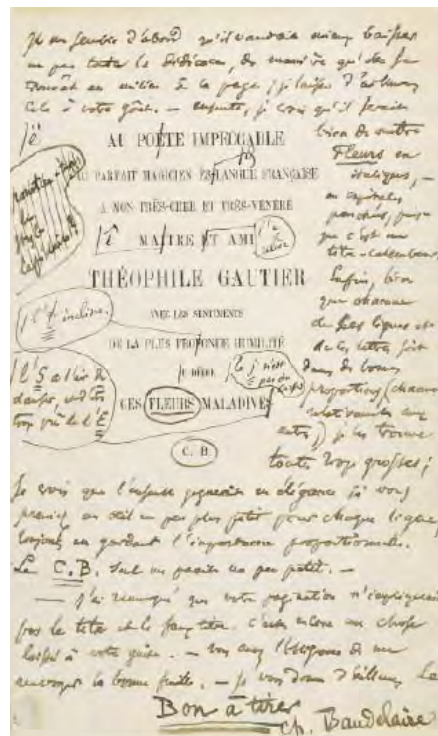 Il me semble d'abord qu'il vaudrait mieux baisser
un peu toute la dédicace, de manière qu'elle se
trouvât au milieu de la page ; je laisse d'ailleurs
cela à votre goût. — ensuite, je crois qu'il serait
bon de mettre
Fleurs en
italiques, —
en capitales
penchées, puis-
que c'est un
titre-calembour.
Enfin, bien
que chacune
de ces lignes et
de ces lettres soit
dans de bonnes
proportions (chacune
relativement aux
autres) je les trouve
toutes trop grosses ;
AU POËTE IMPECCABLE
PARFAIT MAGICIEN ÈS LANGUE FRANÇAISE
A MON TRÈS-CHER ET TRÈS-VÉNÉRÉ
MAITRE ET AMI
THÉOPHILE GAUTIER
AVEC LES SENTIMENTS
DE LA PLUS PROFONDE HUMILITÉ
JE DÉDIE
CES FLEURS MALADIVES
C. B.
l'S a l'air de
trop près de l'E
Je crois que l'ensemble gagnerait en élégance si vous
preniez un œil un peu plus petit pour chaque ligne,
toujours en gardant l'importance proportionnelle.
Le C.B. seul me paraît un peu petit. —
— j'ai remarqué que votre pagination n'impliquait
pas le titre et le faux titre. c'est encore une chose
laissée à votre guise. —
renvoyer la bonne feuille. — je vous donne d'ailleurs Le
Bon à tirer
Ch. Baudelaire